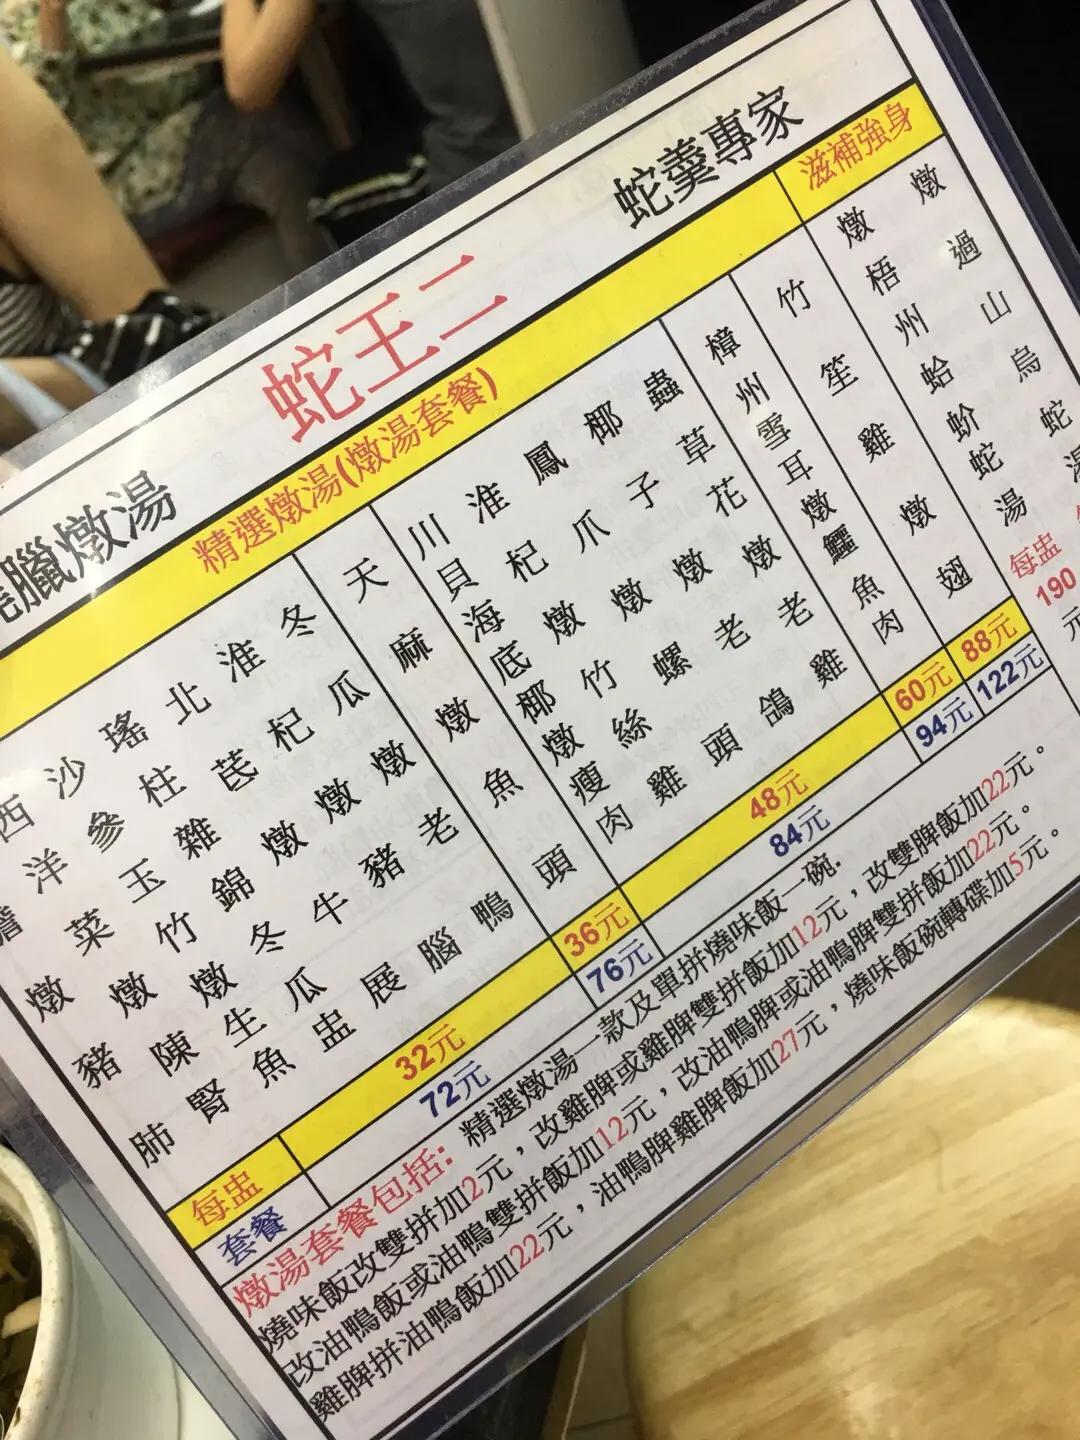 臘燉湯
蛇王二
蛇羹專家
精選燉湯(燉湯套餐)
滋補強身
燉過山烏蛇湯
燉梧州蛤蚧蛇湯
每盅
190元
竹笙雞燉翅
樟州雪耳燉鱷魚肉
蟲草花燉老雞
椰子燉老鴿
鳳爪燉螺頭
淮杞燉竹絲雞
川貝海底椰燉瘦肉
天麻燉魚頭
冬瓜燉老鴨
淮杞燉豬腦
北芪燉牛展
瑤柱雜錦冬瓜盅
沙參玉竹燉生魚
西洋菜燉陳腎
燉豬肺
每盅 32元 36元 48元 60元 88元
套餐 72元 76元 84元 94元 122元
燉湯套餐包括: 精選燉湯一款及單拼燒味飯一碗.
燒味飯改雙拼加2元，改雞脾或雞脾雙拼飯加12元，改雙脾飯加22元。
改油鴨飯或油鴨雙拼飯加12元，改油鴨脾或油鴨脾雙拼飯加22元。
雞脾拼油鴨飯加22元，油鴨脾雞脾飯加27元，燒味飯碗轉碟加5元。